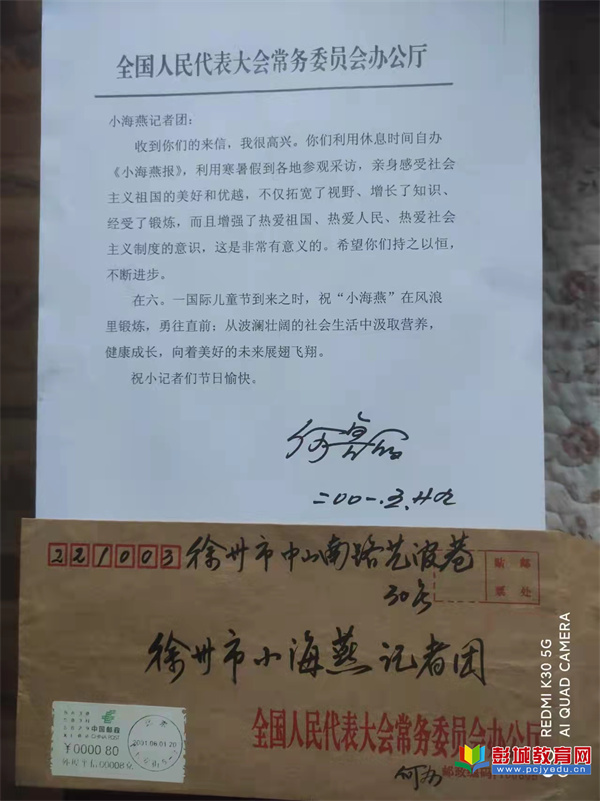 全国人民代表大会常务委员会办公厅
小海燕记者团：
收到你们的来信，我很高兴。你们利用休息时间自办
《小海燕报》，利用寒暑假到各地参观采访，亲身感受社会
主义祖国的美好和优越，不仅拓宽了视野、增长了知识、
经受了锻炼，而且增强了热爱祖国、热爱人民、热爱社会
主义制度的意识，这是非常有意义的。希望你们持之以恒，
不断进步。
在六。一国际儿童节到来之时，祝“小海燕”在风浪
里锻炼，勇往直前；从波澜壮阔的社会生活中汲取营养，
健康成长，向着美好的未来展翅飞翔。
祝小记者们节日愉快。
二00一.五.廿九
221003
徐州市中山南路艺波巷
30号
贴 邮
票 处
徐州市小海燕记者团
中国邮政
CHINA POST
￥0000.80
2001.06.01.20
全国人民代表大会常务委员会办公厅
何办
邮政编码
REDMI K30 5G
AI QUAD CAMERA
彭城教育网
www.pcjyedu.cn